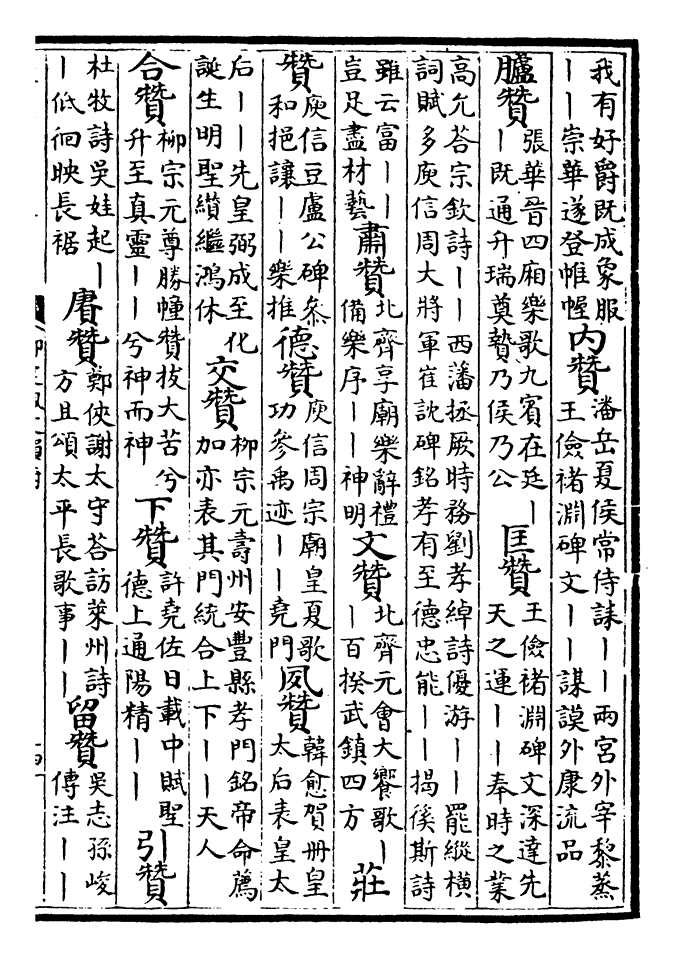 我有好爵既成象服
丨丨崇華遂登帷幄
内贊
潘岳夏侯常侍誄丨丨兩宮外宰黎蒸
王儉褚淵碑文丨丨謀謨外康流品
臚贊
張華晉四廂樂歌九賓在廷丨
丨既通升瑞奠贄乃侯乃公
匡贊
王儉褚淵碑文深達先
天之運丨丨奉時之業
高允荅宗欽詩丨丨西藩拯厥時務劉孝綽詩優游丨丨罷縱橫
詞賦多庾信周大將軍崔訦碑銘孝有至德忠能丨丨揭傒斯詩
雖云富丨丨
豈足盡材藝
肅贊
北齊享廟樂辭禮
備樂序丨丨神明
文贊
北齊元會大饗歌丨
丨百揆武鎮四方
莊
贊
庾信豆盧公碑叅
和挹讓丨丨樂推
德贊
庾信周宗廟皇夏歌
功參禹迹丨丨堯門
夙贊
韓愈賀冊皇
太后表皇太
后丨丨先皇弼成至化
誕生明聖纘繼鴻休
交贊
柳宗元壽州安豐縣孝門銘帝命薦
加亦表其門統合上下丨丨天人
合贊
柳宗元尊勝幢贊拔大苦兮
升至真靈丨丨兮神而神
下贊
許堯佐日載中賦聖
德上通陽精丨丨
引贊
杜牧詩吳娃起丨
丨低徊映長裾
賡贊
鄭俠謝太守荅訪萊州詩
方且頌太平長歌事丨丨
留贊
吳志孫峻
傳注丨丨